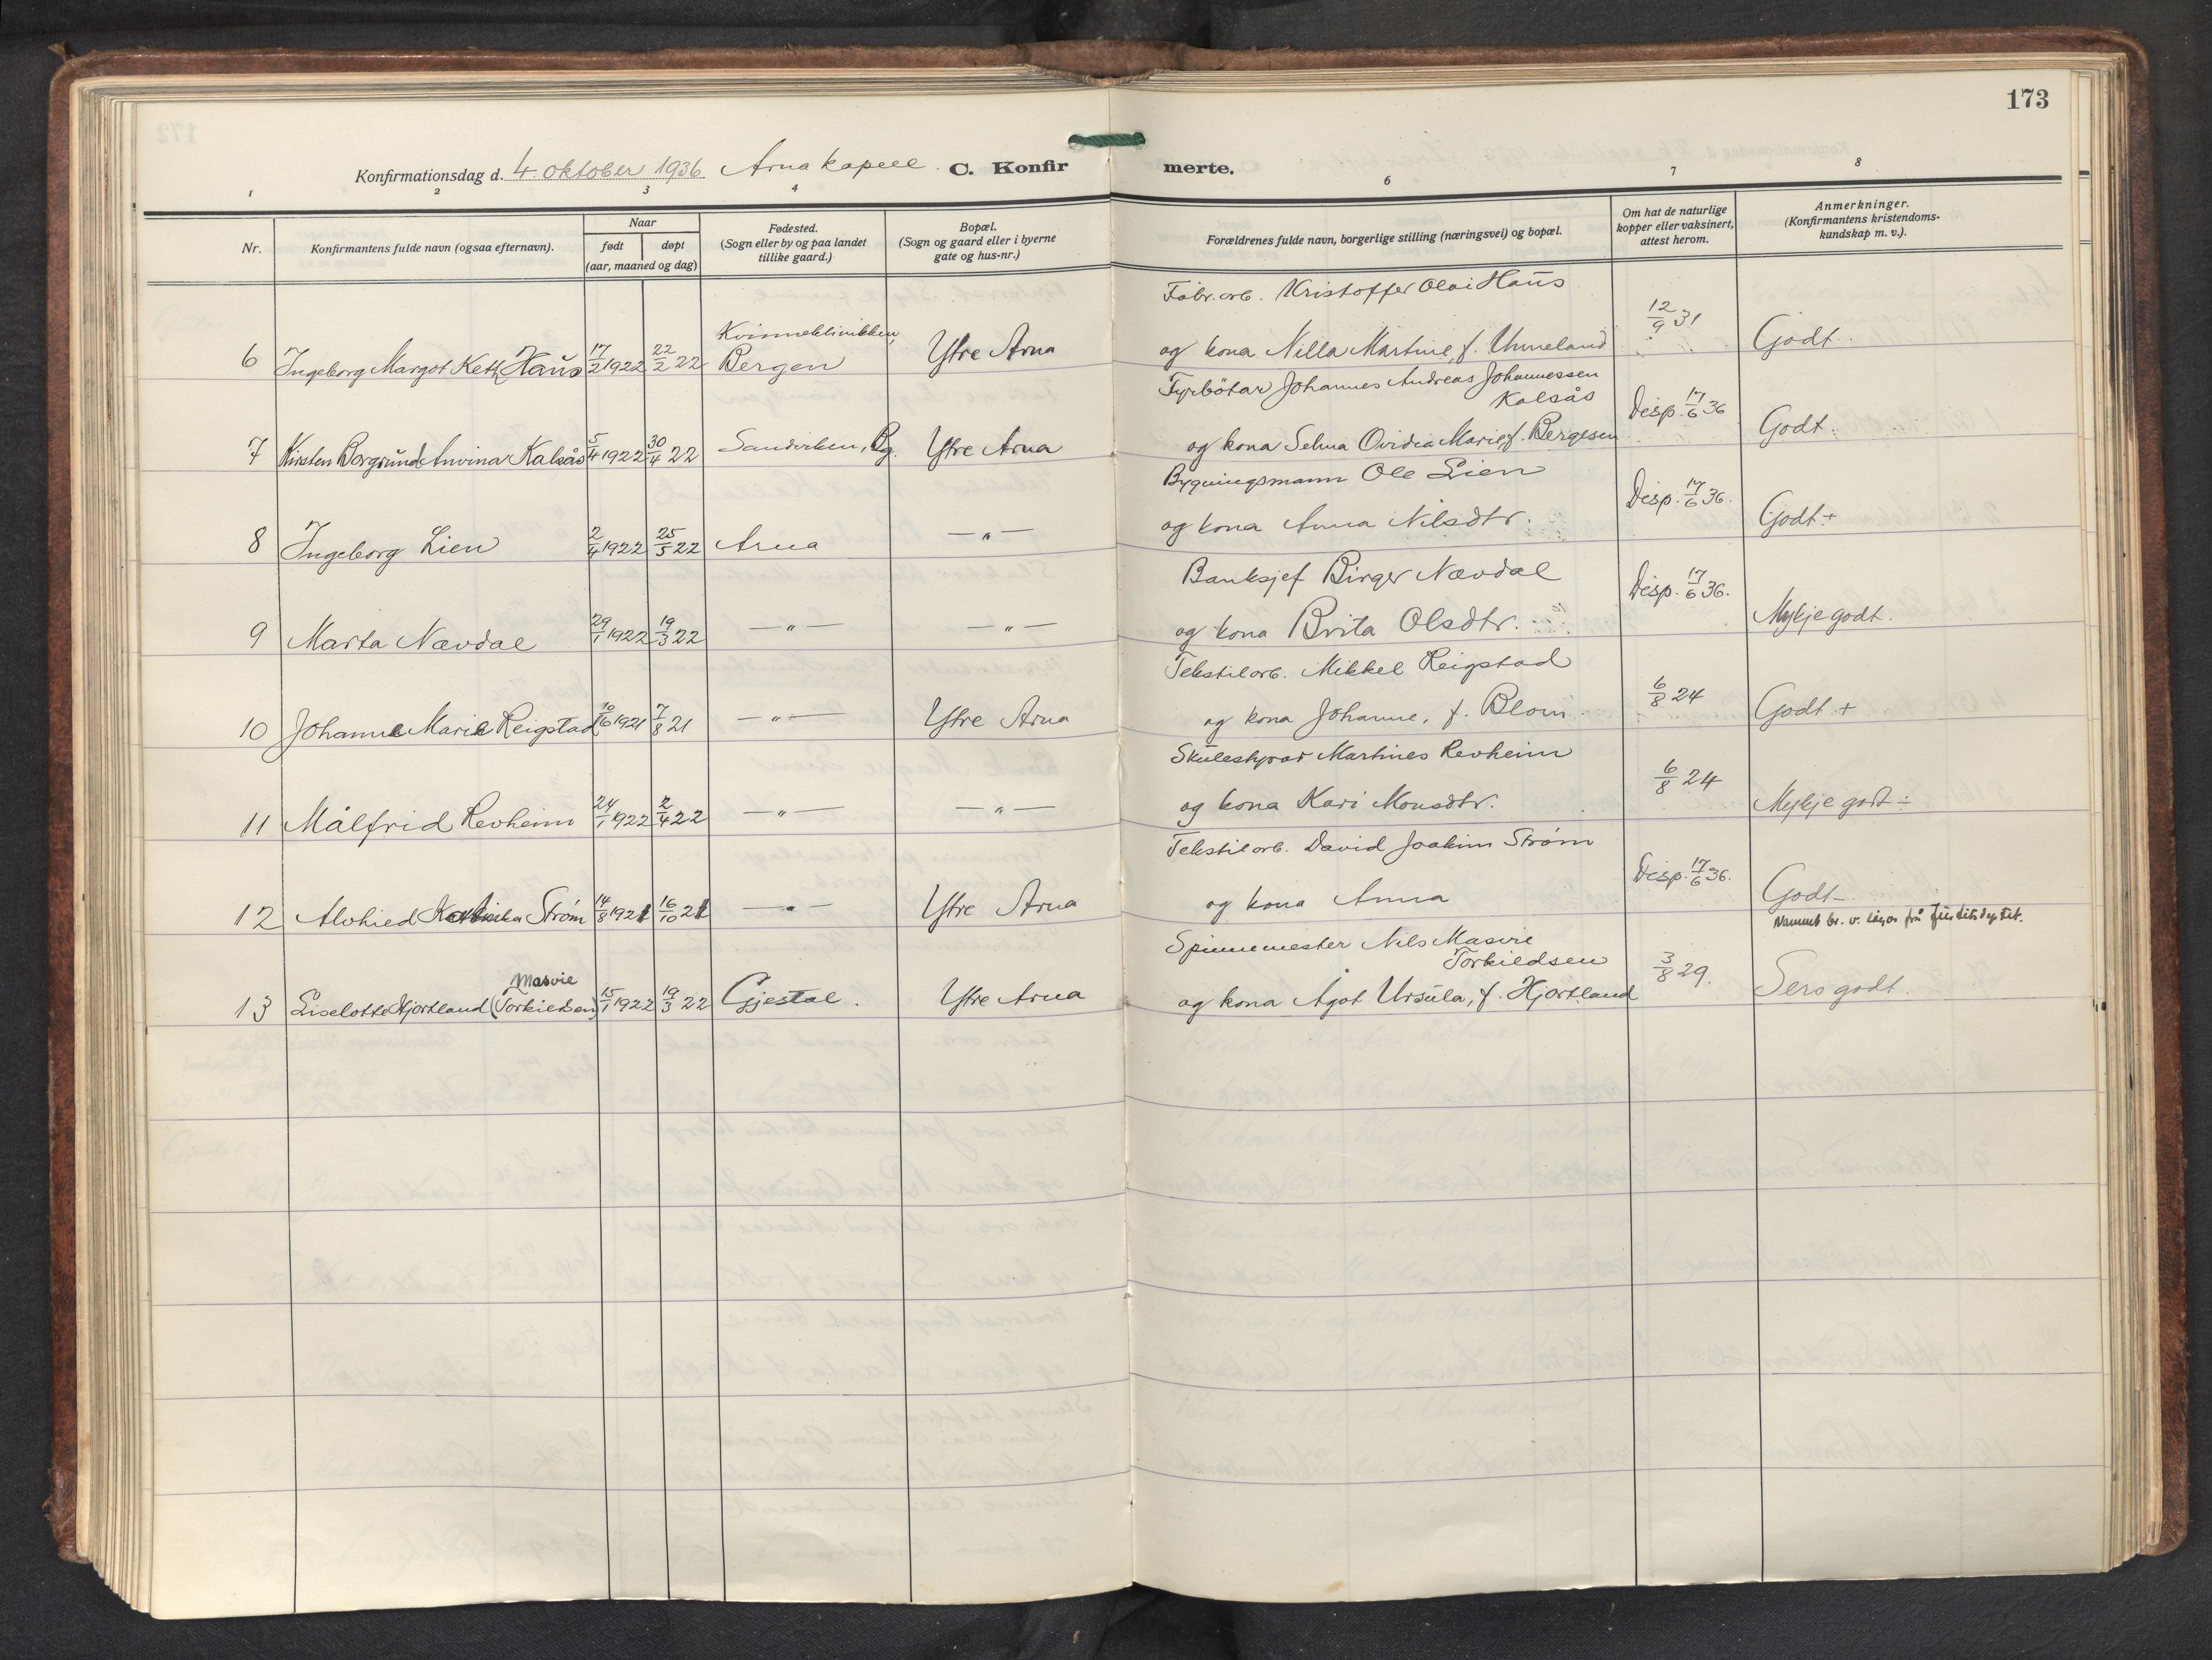 173
Konfirmationsdag d. 4. oktober 1936 Arna kapell. C. Konfirmerte.
1 2 3 4 6 7 8
Nr. Konfirmantens fulde navn (ogsaa efternavn). Naar født døpt (aar, maaned og dag) Fødested. (Sogn eller by og paa landet tillike gaard.) Bopæl. (Sogn og gaard eller i byerne gate og hus-nr.) Forældrenes fulde navn, borgerlige stilling (næringsvei) og bopæl. Om hat de naturlige kopper eller vaksinert, attest herom. Anmerkninger. (Konfirmantens kristendoms-kundskap m. v.).
Fabr.arb. Kristoffer Olai Haus
6 Ingeborg Margot Keth Haus 17/2 1922 22/2 22 Kvinneklinikken, Bergen Ytre Arna og kona Nilla Martine, f. Unneland 12/9 31 Godt.
Fyrbötar Johannes Andreas Johannessen Kalsås
7 Kirsten Borgrund Anvinar Kalsås 5/4 1922 30/4 22 Sandviken, Bg. Ytre Arna og kona Selma Ovidia Marie, f. Bergesen Disp. 17/6 36 Godt.
Bygningsmann Ole Lien
8 Ingeborg Lien 2/4 1922 25/5 22 Arna —„— og kona Anna Nilsdtr. Disp. 17/6 36. Godt +
Banksjef Birger Nævdal
9 Marta Nævdal 29/1 1922 19/3 22 —„— —„— og kona Brita Olsdtr. Disp. 17/6 36. Mykje godt.
Tekstilarb. Mikkel Reigstad
10 Johanne Marie Reigstad 10/6 1921 7/8 21 —„— Ytre Arna og kona Johanne, f. Blom. 6/8 24 Godt +
Skulestyrar Martines Revheim
11 Målfrid Revheim 24/1 1922 2/4 22 —„— —„— og kona Kari Monsdtr. 6/8 24 Mykje godt ÷
Tekstilarb. David Joakim Strøm
12 Alvhied Strøm 14/8 1921 16/10 21 —„— Ytre Arna og kona Anna Disp. 17/6 36. Godt –
Masvie Namnet br. v. frå Justitsdep.tet.
Spinnemester Nils Masvie Torkildsen
13 Liselotte Hjortland (Torkildsen) 15/1 1922 19/3 22 Gjestal. Ytre Arna og kona Ågot Ursula, f. Hjortland 3/8 29. Sers godt.